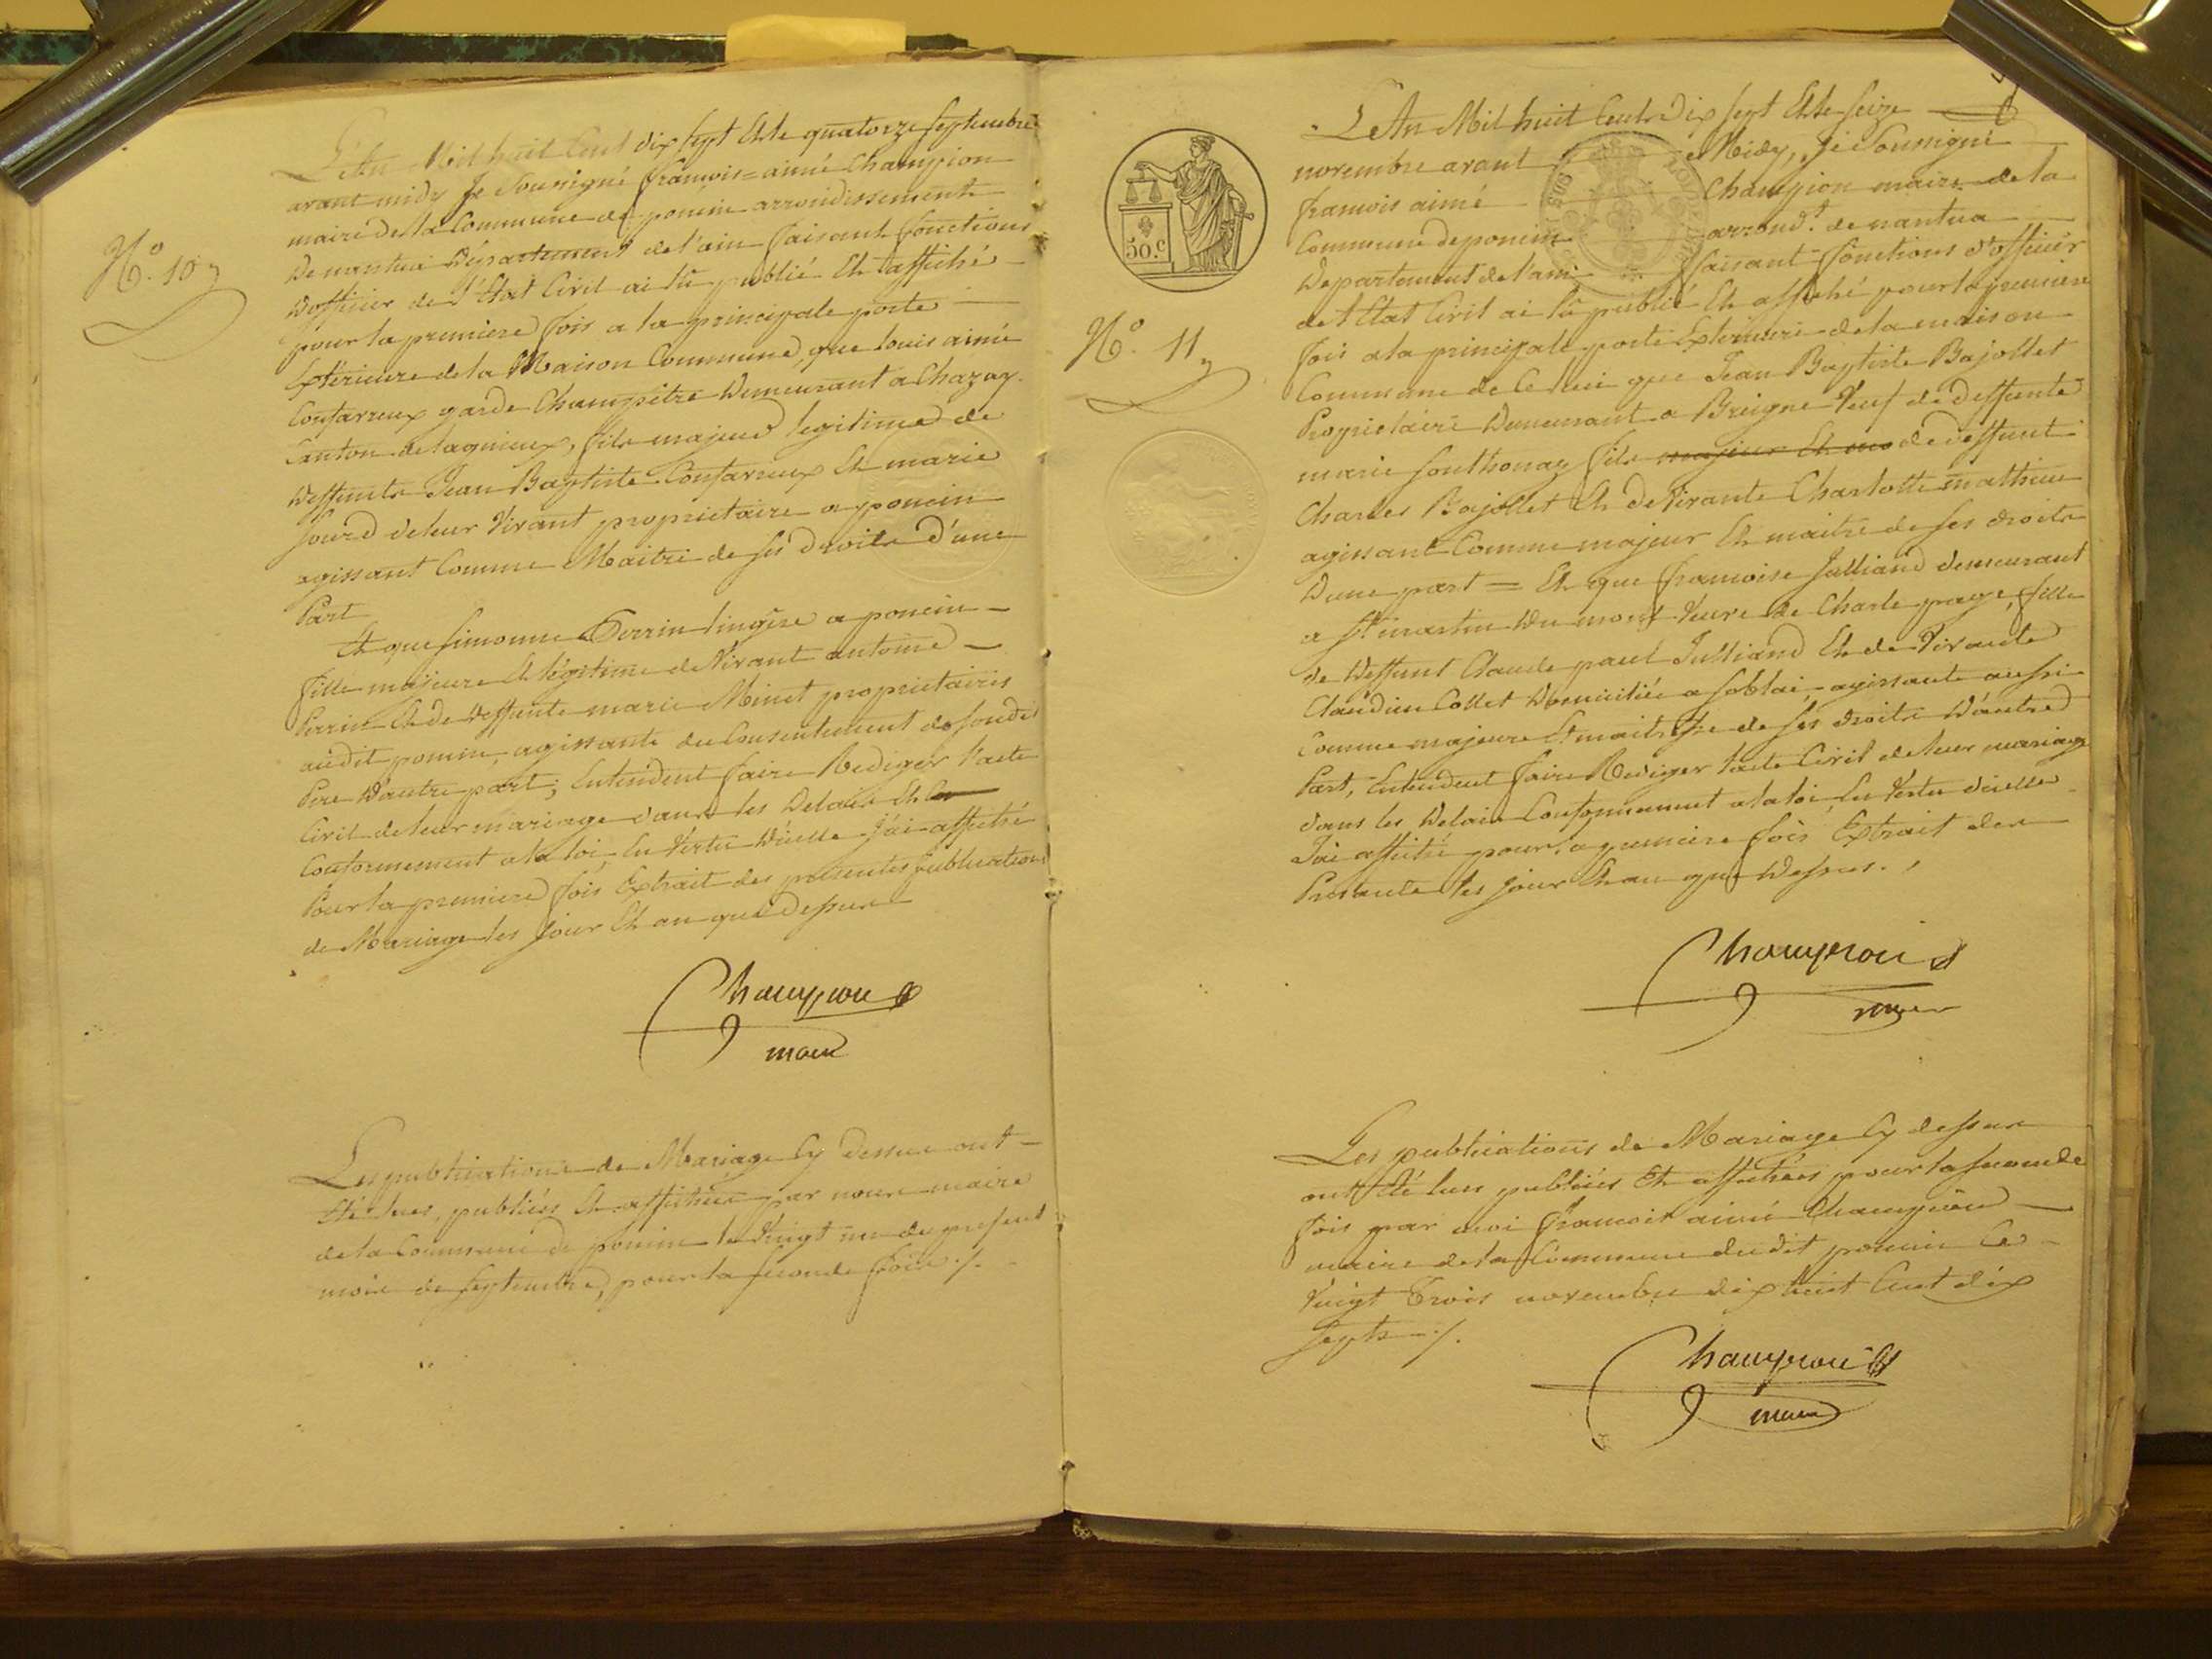 N.o 10
L'An Mil huit Cent dix sept Et le quatorze septembre
avant midy Je Soussigné françois=aimé Champion
maire de la Commune de poncin arrondissement
De nantua Département de l'ain faisant fonctions
D'officier de l'Etat Civil ai lû publié Et affiché
pour la premiere fois a la principale porte
Extérieure de la Maison Commune, que louis aimé
garde Champêtre Demeurant a Chazay
Canton de lagnieux, fils majeur legitime de
Deffunts Jean Baptiste Et marie
de leur Vivant proprietaire a poncin
agissant Comme Maitre de ses Droits D'une
Part
Et que Simonne Perrin lingère a poncin
fille majeure Et légitime de Vivant antoine
Perrin Et de Deffunte marie Minet proprietaires
audit poncin, agissante du Consentement de sondit
Pere D'autre part; Entendent faire Rediger l'acte
Civil de leur mariage dans les Delais Et
Conformement a la loi, En Vertu D'icelle J'ai affiché
Pour la premiere fois Extrait des presentes publications
de Mariage les jour Et an que dessus
Champion
maire
Les publications de Mariage Cy Dessus ont
Eté lues, publiées Et affichées par nous maire
de la Commune de poncin le Vingt un du present
mois de septembre, pour la seconde fois ./.
50.c
N.o 11
L'An Mil huit Cent Dix sept Et le Seize
novembre avant Midy, Je Soussigné
françois aimé Champion maire de la
Commune de poncin arrond.t de nantua
Departement de l'ain faisant fonctions d'officier
de l'Etat Civil ai lû publié Et affiché pour la premiere
fois a la principale porte Exterieure de la maison
Commune de Ce lieu que Jean Baptiste Bajollet
Proprietaire Demeurant a Veuf de deffunte
marie fils majeur Et de deffunt
Charles Bajollet Et de Vivante Charlotte mathieu
agissant Comme majeur Et maitre de ses droits
D'une part = Et que françoise Julliand demeurant
a St martin du mont Veuve de Charle page, fille
de Deffunt Claude paul Julliand Et de Vivante
Claudine Collet Domiciliée a agissante aussi
Comme majeure Et maitresse de ses droits D'autre
Part, Entendent faire Rediger l'acte Civil de leur mariage
dans les Delais Conformement a la loi, En Vertu d'icelle
J'ai affiché pour la premiere fois Extrait des
Presente les jour Et an que Dessus ./
Champion
maire
Les publications de Mariage Cy dessus
ont Eté lues publiées Et affichées pour la seconde
fois par moi françois aimé Champion
maire de la Commune dudit poncin Ce
Vingt Trois novembre dix huit Cent dix
Sept ./.
Champion
maire